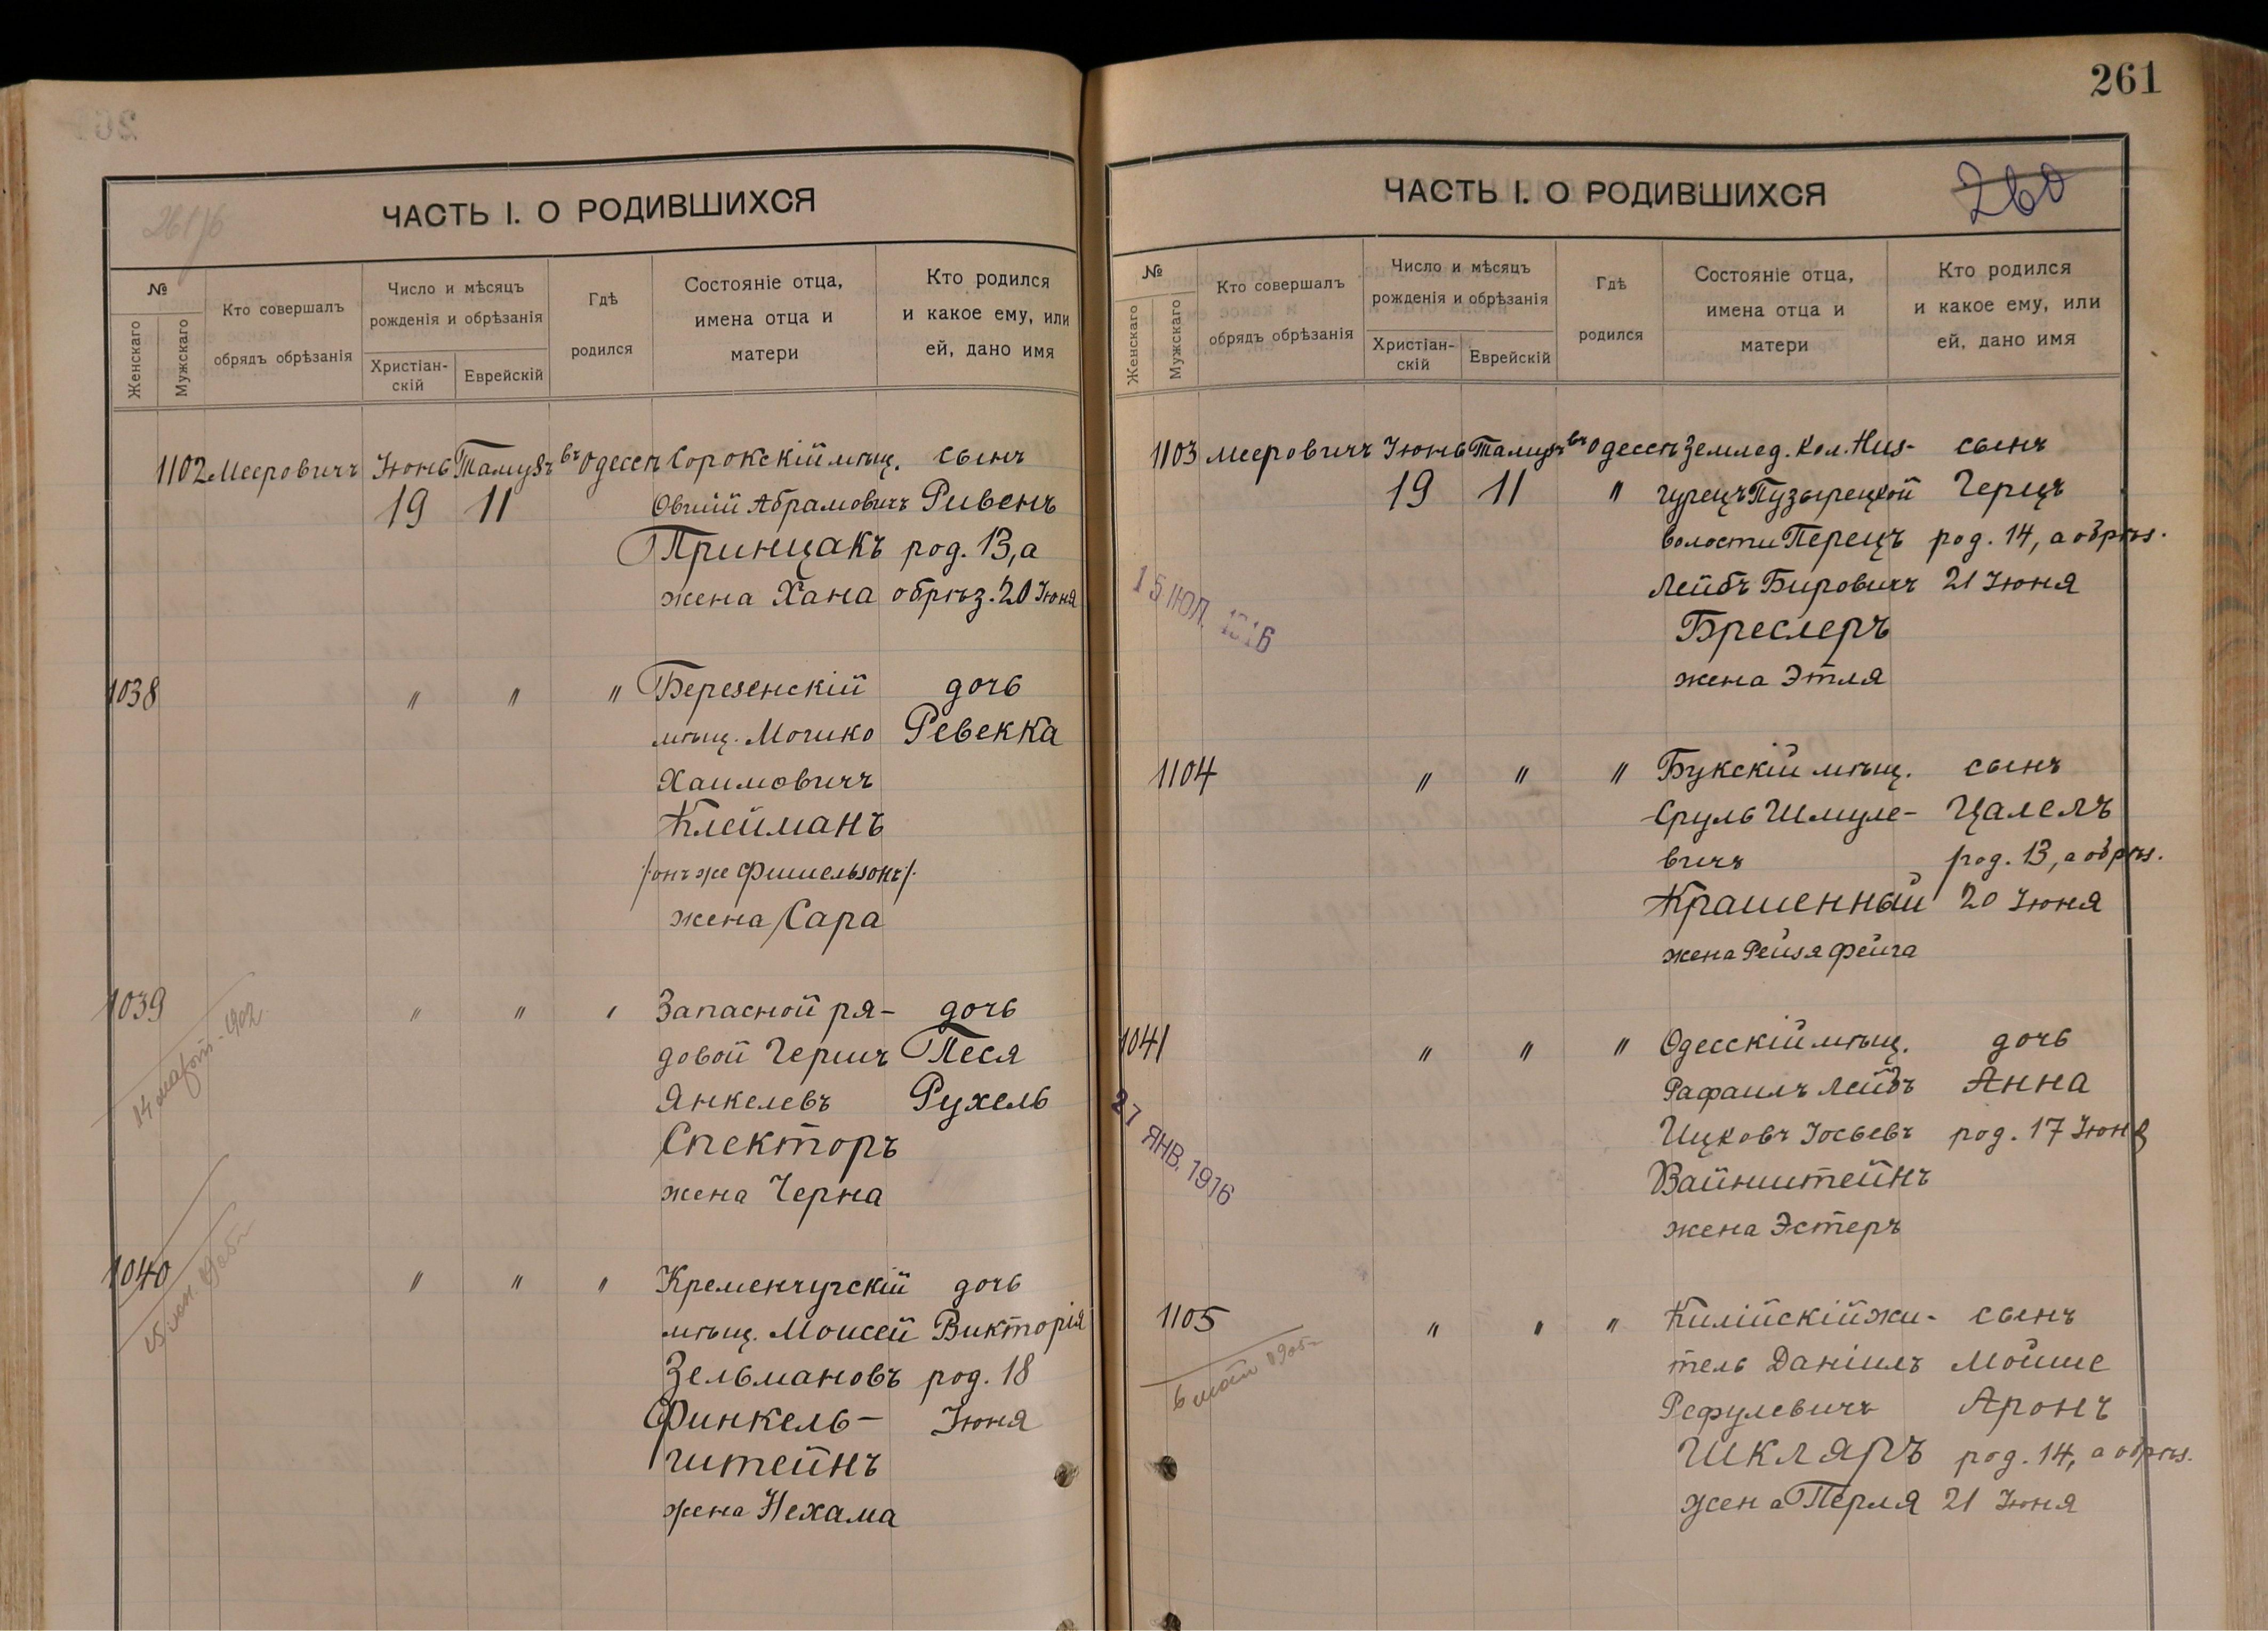 261
ЧАСТЬ I. О РОДИВШИХСЯ
261/б
№
Женскаго
Мужскаго
Кто совершалъ
обрядъ обрѣзанія
Число и мѣсяцъ
рожденія и обрѣзанія
Христіан-
скій
Еврейскій
Гдѣ
родился
Состояніе отца,
имена отца и
матери
Кто родился
и какое ему, или
ей, дано имя
1102 Мееровичъ Іюнь Тамузъ въ Одессѣ Сорокскій мѣщ. сынъ
19 11 Овшій Абрамовичъ Ривенъ
Принцакъ род. 13, а
жена Хана обрѣз. 20 Іюня
1038 " " " Березенскій дочь
мѣщ. Мошко Ревекка
Хаимовичъ
Клейманъ
/онъ же Фишельзонъ/
жена Сара
1039 " " " Запасной ря- дочь
довой Гершъ Песя
Янкелевъ Рухель
Спекторъ
жена Черна
1040 " " " Кременчугскій дочь
мѣщ. Моисей Викторія
Зельмановъ род. 18
Финкель- Іюня
штейнъ
жена Нехама
ЧАСТЬ I. О РОДИВШИХСЯ
260
№
Женскаго
Мужскаго
Кто совершалъ
обрядъ обрѣзанія
Число и мѣсяцъ
рожденія и обрѣзанія
Христіан-
скій
Еврейскій
Гдѣ
родился
Состояніе отца,
имена отца и
матери
Кто родился
и какое ему, или
ей, дано имя
1103 Мееровичъ Іюнь Тамузъ въ Одессѣ Землед. Кол. Низ- сынъ
19 11 " гурецъ Пузырецкой Герцъ
волости Перецъ род. 14, а обрѣз.
Лейбъ Бировичъ 21 Іюня
15 ІЮЛ. 1916
Бреслеръ
жена Этля
1104 " " " Букскій мѣщ. сынъ
Сруль Шмуле- Цалелъ
вичъ род. 13, а обрѣз.
Крашенный 20 Іюня
жена Рейзя Фейга
1041 " " " Одесскій мѣщ. дочь
Рафаилъ Лейбъ Анна
Ицковъ Іосьевъ род. 17 Іюня
27 ЯНВ. 1916
Вайнштейнъ
жена Эстеръ
1105 " " " Килійскій жи- сынъ
тель Даніилъ Мойше
Рефулевичъ Аронъ
Шкляръ род. 14, а обрѣз.
жена Перля 21 Іюня